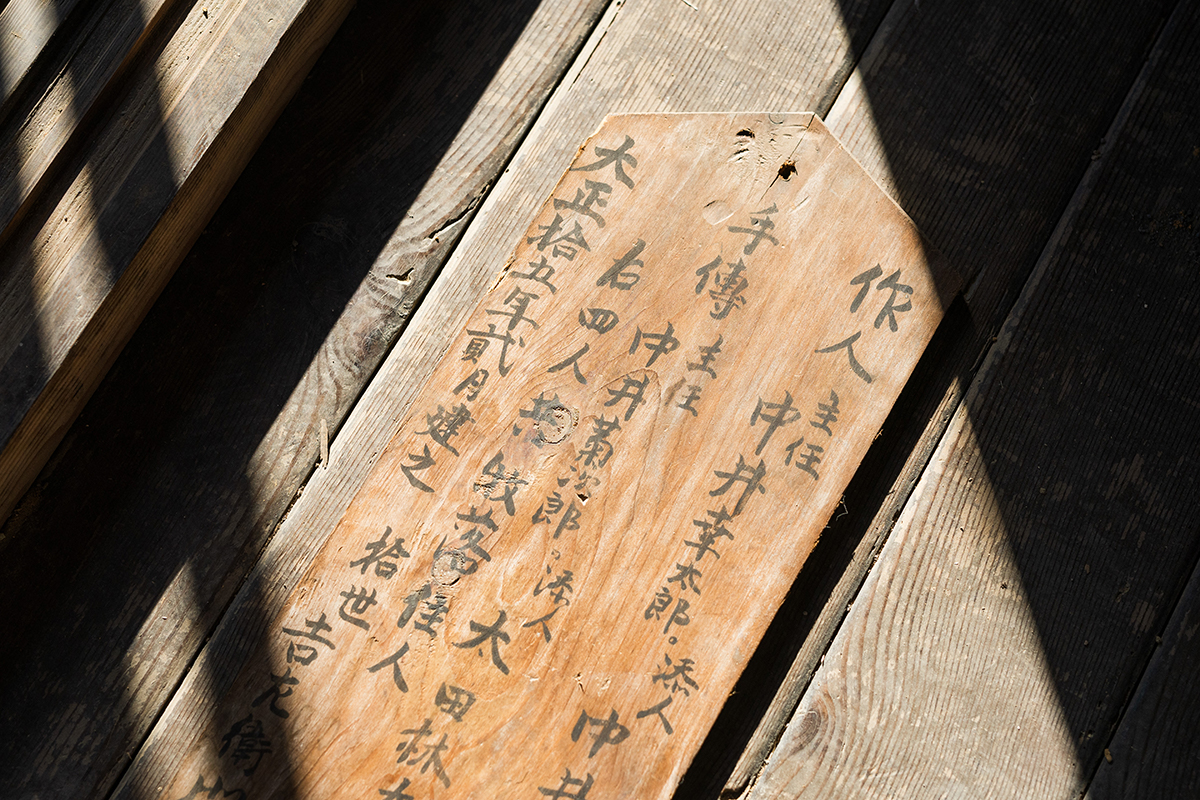 作人 主任 中井幸太郎。添人 中井
手傳 主任 中井菊次郎。添人 太田林
右四人共 落住人
大正拾五年貳月建之 拾世 吉左衛